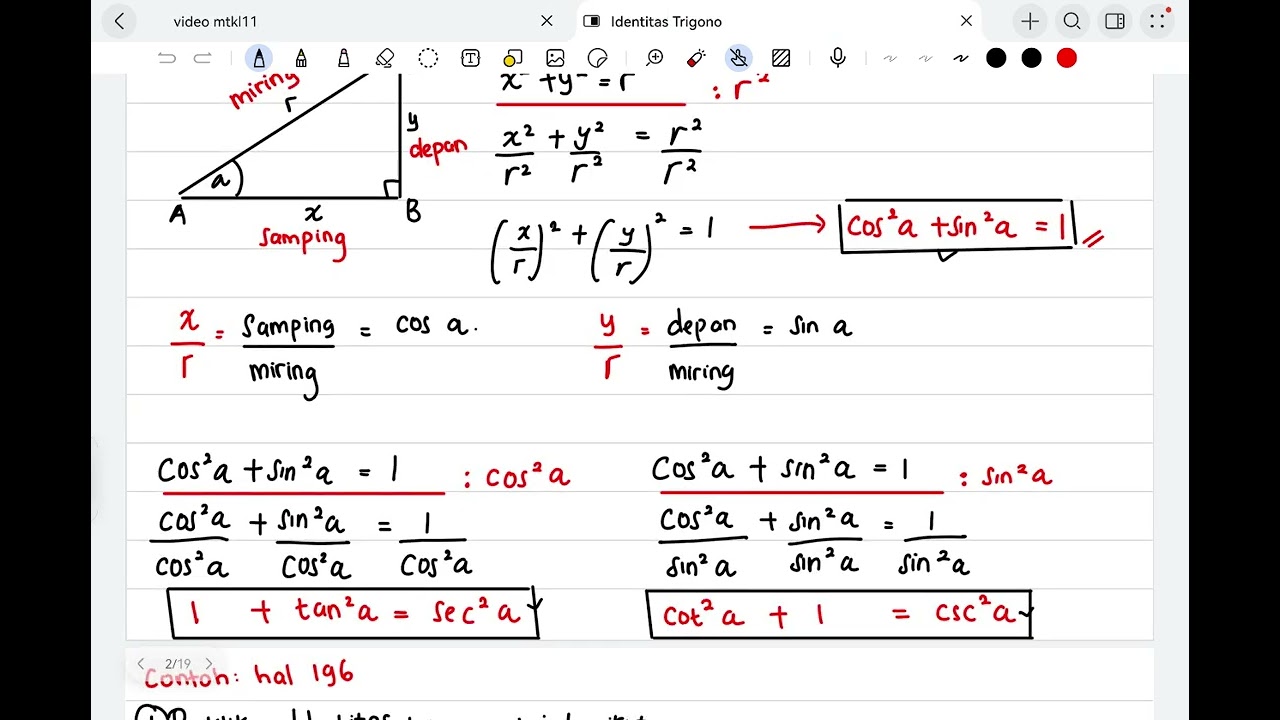 video mtkl11
Identitas Trigono
miring
r
y
depan
a
A
x
B
samping
x² + y² = r² : r²
x²/r² + y²/r² = r²/r²
(x/r)² + (y/r)² = 1 → cos²a + sin²a = 1
x/r = samping/miring = cos a.
y/r = depan/miring = sin a
cos²a + sin²a = 1 : cos²a
cos²a/cos²a + sin²a/cos²a = 1/cos²a
1 + tan²a = sec²a
cos²a + sin²a = 1 : sin²a
cos²a/sin²a + sin²a/sin²a = 1/sin²a
cot²a + 1 = csc²a
2/19
Contoh: hal 196